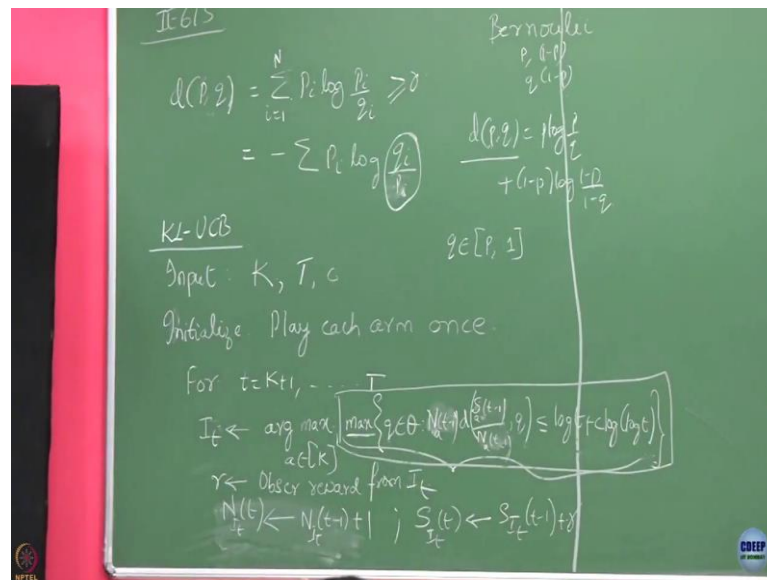 IE-613
d(p,q) = N∑i=1 Pi log Pi/qi ≥ 0
= - ∑ Pi log qi/Pi
Bernoulei
P, (1-P)
q (1-P)
d(p,q) = p log P/q
+ (1-p) log 1-p/1-q
q∈[P, 1]
KL-UCB
Input: K, T, c
Initialize Play each arm once.
For t=K+1, ..... T
It ← arg max a∈[K] max { q∈θ: Na(t-1) d(Sa(t-1)/Na(t-1), q) ≤ log t + c log(log t) }
r ← Obser reward from It
NIt(t) ← NIt(t-1)+1 ; SIt(t) ← SIt(t-1)+r
NPTEL
CDEEP
IIT BOMBAY